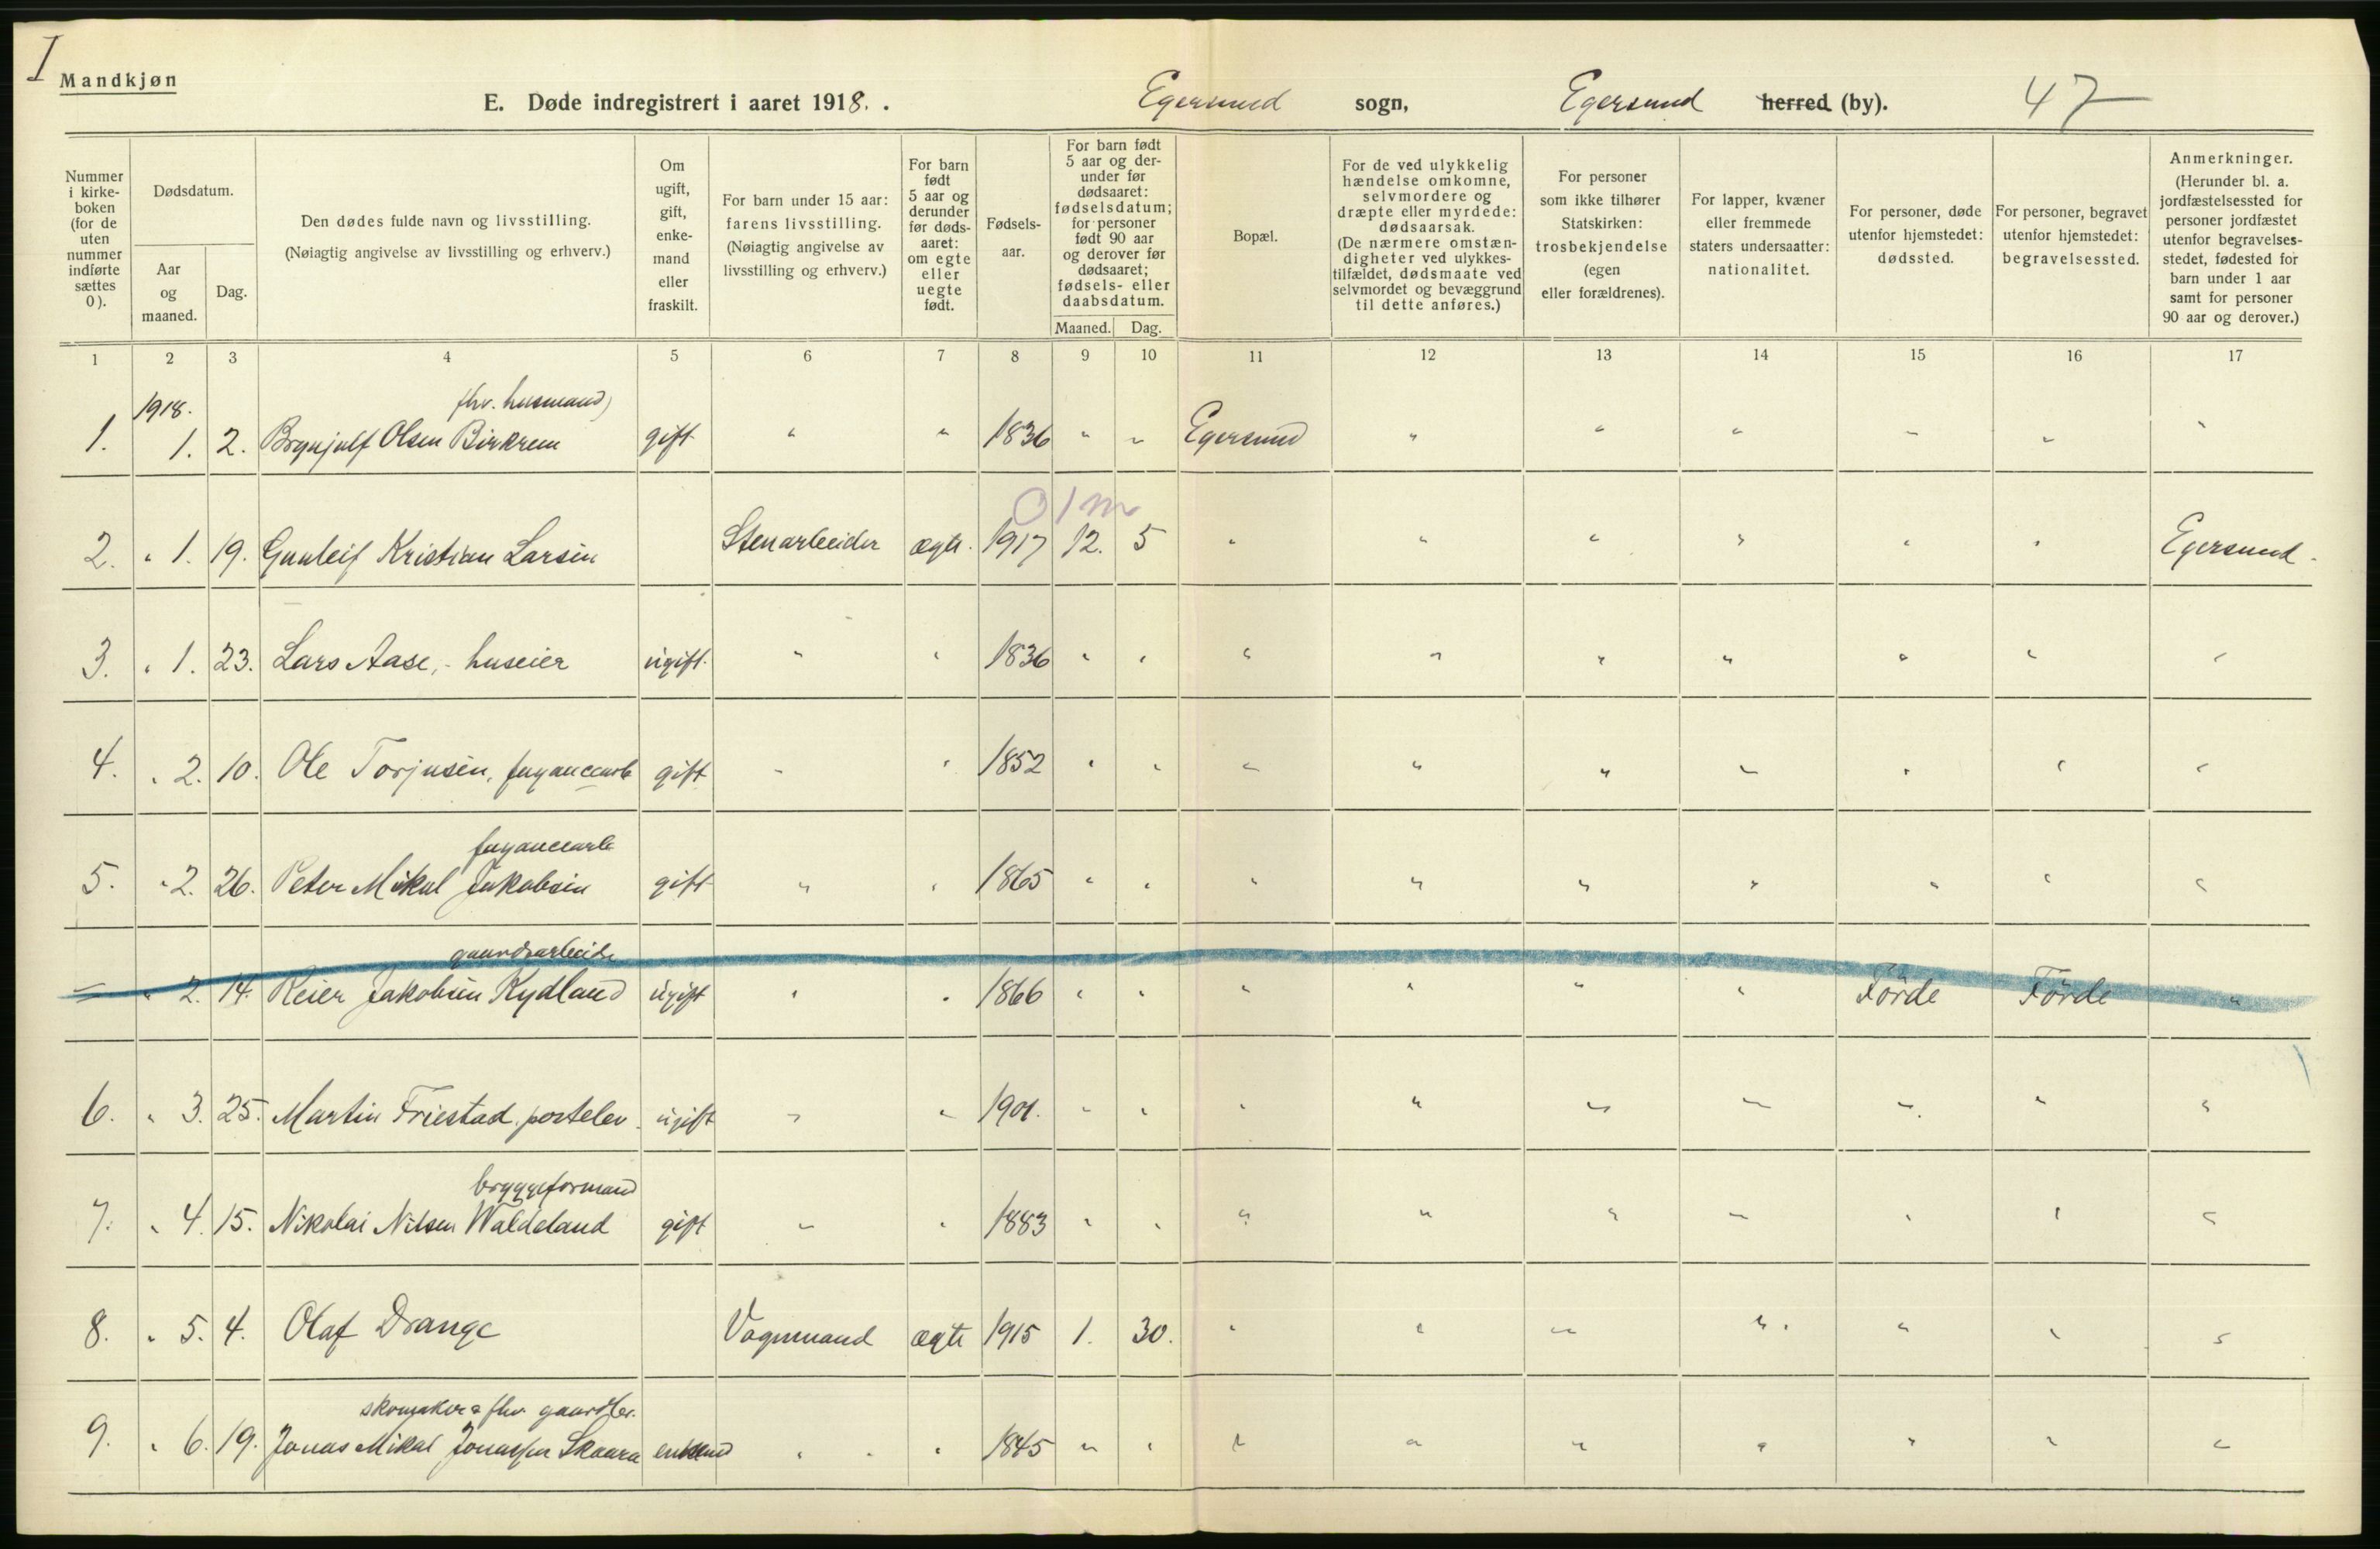 I
Mandkjøn
E. Døde indregistrert i aaret 1918. . Egersund sogn, Egersund herred (by). 47
Nummer i kirke- boken (for de uten nummer indførte sættes 0).
Dødsdatum.
Aar og maaned.
Dag.
Den dødes fulde navn og livsstilling.
(Nøiagtig angivelse av livsstilling og erhverv.)
Om ugift, gift, enke- mand eller fraskilt.
For barn under 15 aar: farens livsstilling. (Nøiagtig angivelse av livsstilling og erhverv.)
For barn født 5 aar og derunder før døds- aaret: om egte eller uegte født.
Fødsels- aar.
For barn født 5 aar og der- under før dødsaaret: fødselsdatum; for personer født 90 aar og derover før dødsaaret; fødsels- eller daabsdatum.
Maaned. Dag.
Bopæl.
For de ved ulykkelig hændelse omkomne, selvmordere og dræpte eller myrdede: dødsaarsak. (De nærmere omstæn- digheter ved ulykkes- tilfældet, dødsmaate ved selvmordet og bevæggrund til dette anføres.)
For personer som ikke tilhører Statskirken: trosbekjendelse (egen eller forældrenes).
For lapper, kvæner eller fremmede staters undersaatter: nationalitet.
For personer, døde utenfor hjemstedet: dødssted.
For personer, begravet utenfor hjemstedet: begravelsessted.
Anmerkninger. (Herunder bl. a. jordfæstelsessted for personer jordfæstet utenfor begravelses- stedet, fødested for barn under 1 aar samt for personer 90 aar og derover.)
1 2 3 4 5 6 7 8 9 10 11 12 13 14 15 16 17
1918. fhv. husmand)
1. 1. 2. Brynjulf Olsen Birkrem gift " " 1836 " " Egersund " " " " " "
0 1 m
2. " 1. 19. Gunleif Kristian Larsen Stenarbeider ægte. 1917 12. 5 " " " " " " Egersund.
3. " 1. 23. Lars Aase, - huseier ugift. " " 1836 " " " " " " " " "
4. " 2. 10. Ole Torjusen, fayancearb gift " " 1852 " " " " " " " " "
fayancearb
5. " 2. 26. Peter Mikal Jakobsen gift " " 1865 " " " " " " " " "
gaardsarbeider
= " 2. 14. Reier Jakobsen Kydland ugift " " 1866 " " " " " " Förde Förde "
6. " 3. 25. Martin Friestad. postelev. ugift " " 1901. " " " " " " " " "
bryggeformand
7. " 4. 15. Nikolai Nilsen Waldeland gift " " 1883 " " " " " " " " "
8. " 5. 4. Olaf Drange Vognmand ægte 1915 1. 30. " " " " " " "
skomaker & fhv. gaardbr.
9. " 6. 19. Jonas Mikal Jonassen Skaara enkemd " " 1845 " " " " " " " " "